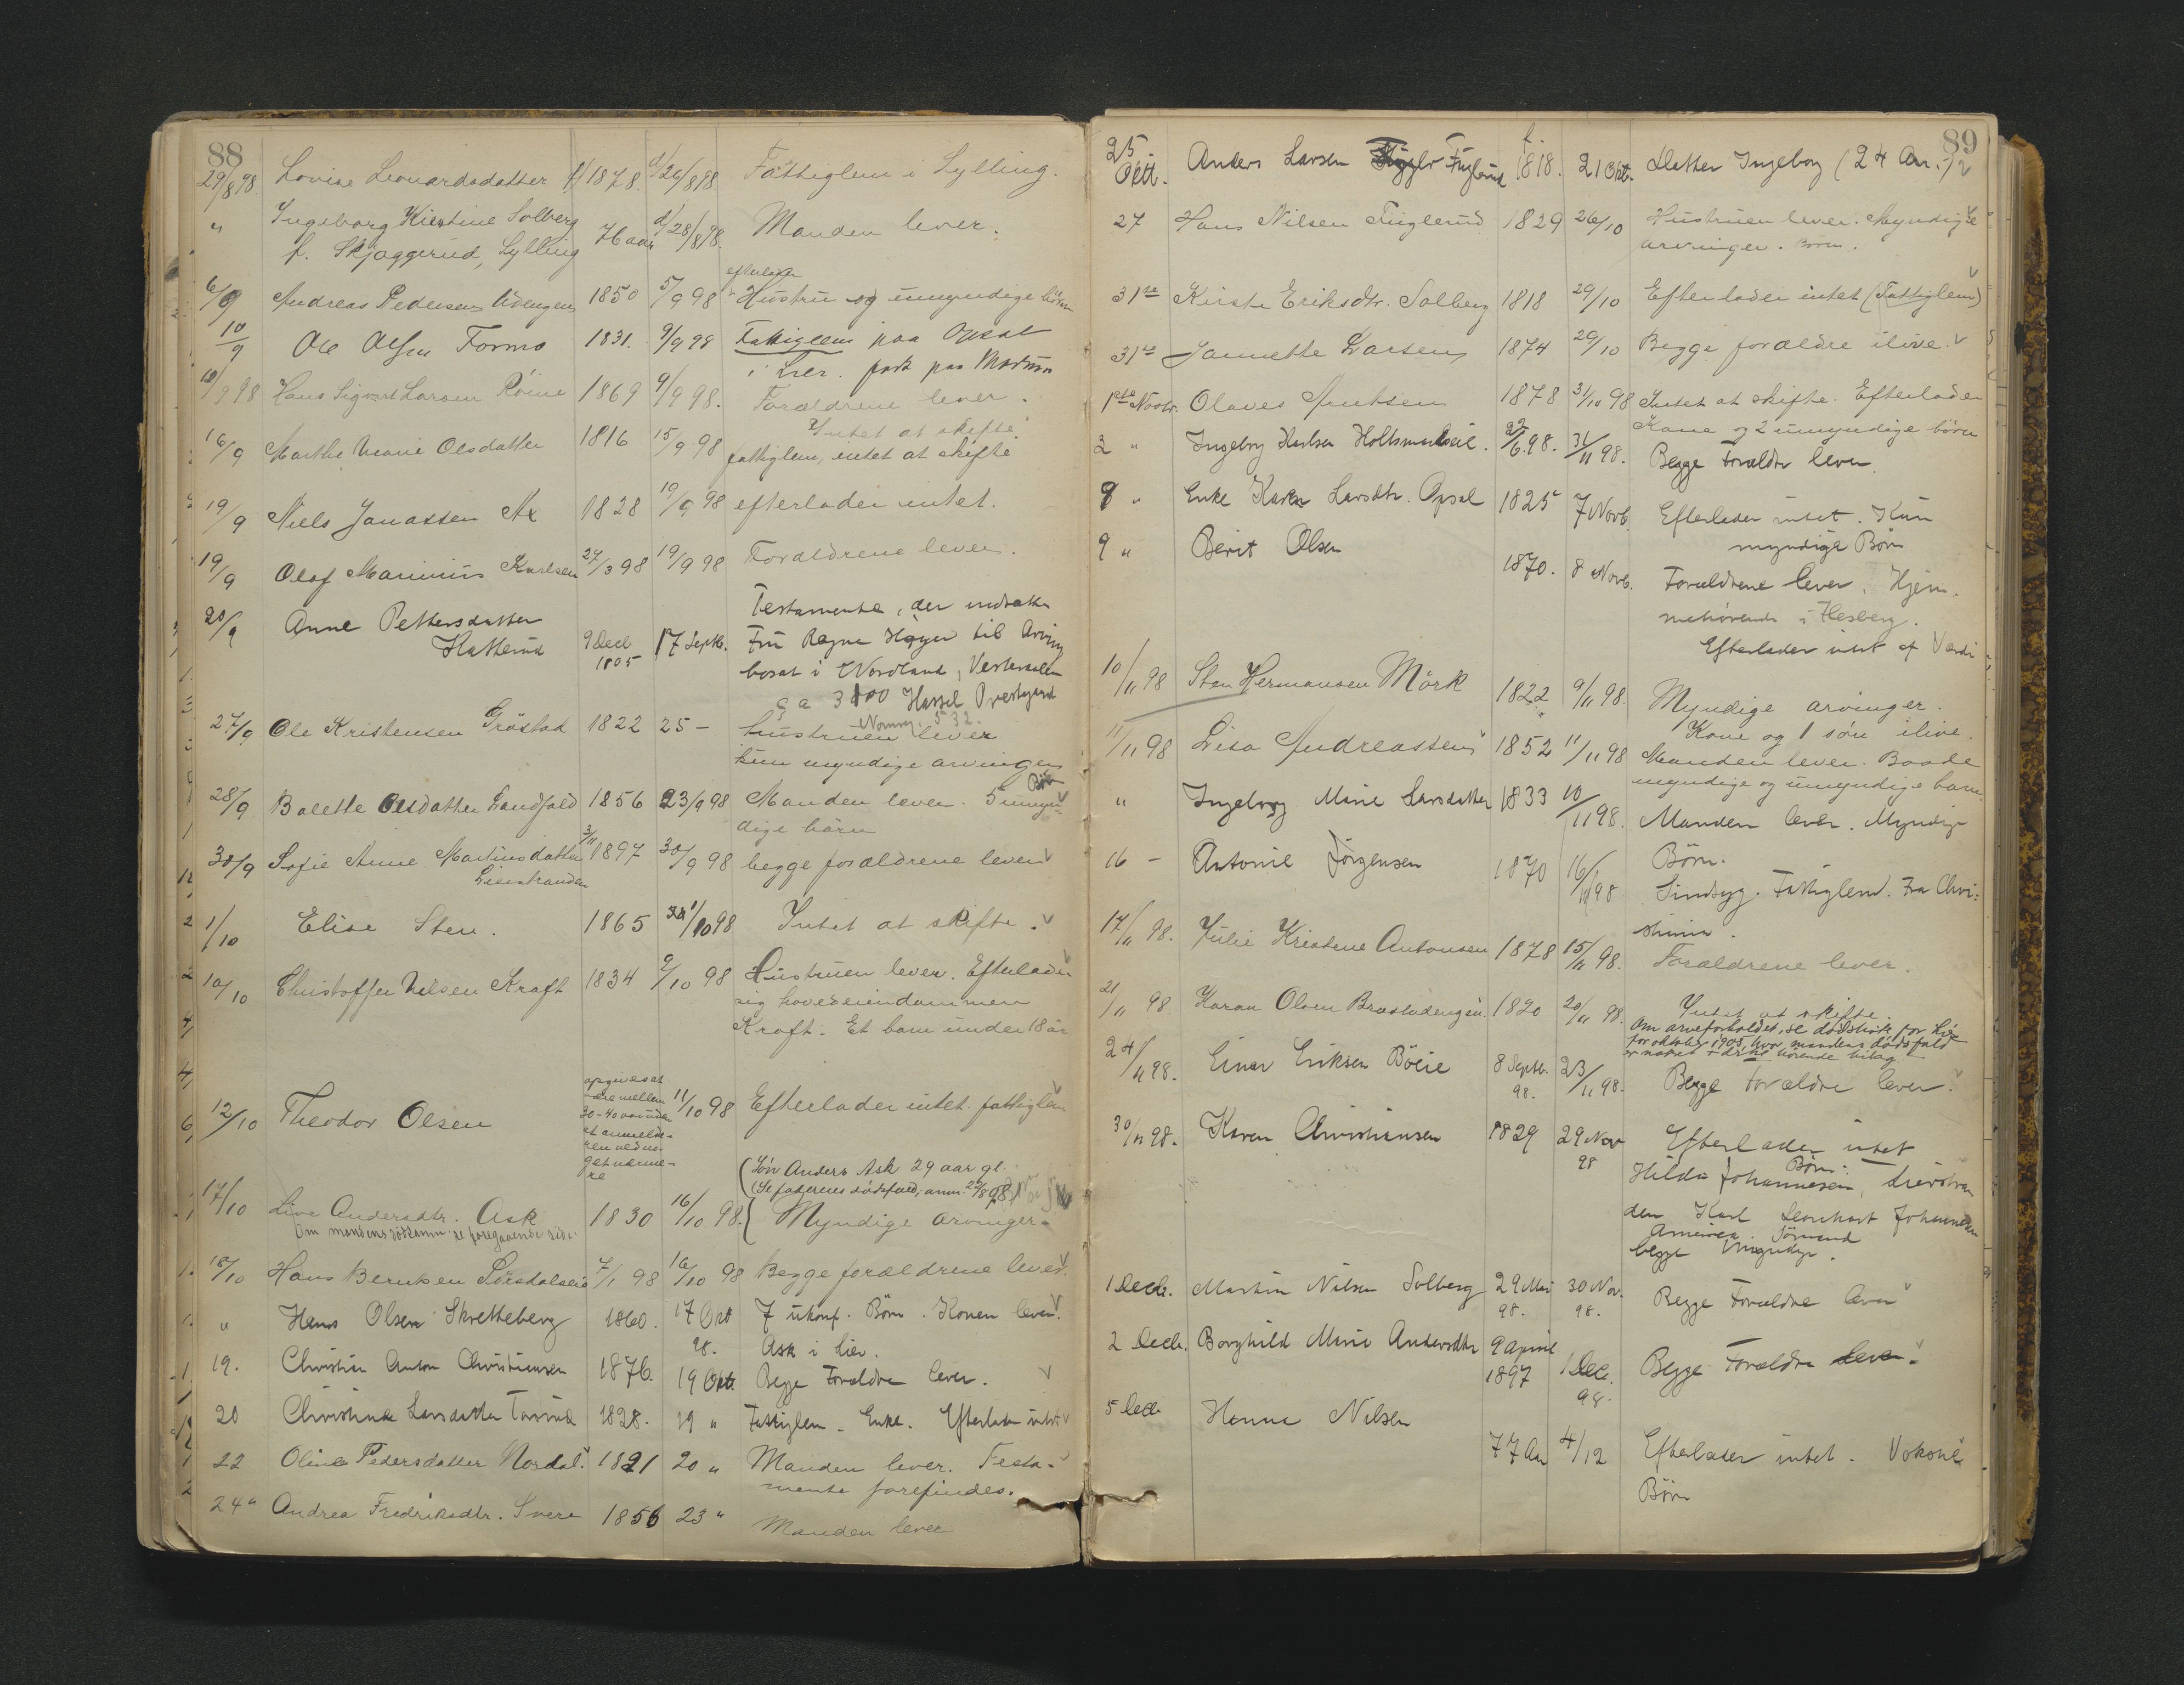 88
29/8 98. Lovise Leonardsdatter f/ 1878. d/ 26/8 98 Fattiglem i Lylling.
" Ingeborg Kirstine Solberg
f. Skjaggerud, Lylling 76 aar d/ 28/8 98. Manden lever.
efterlader
6/9 Andreas Pedersen Udengen 1850 5/9 98 Hustru og umyndige börn
10/9 Ole Olsen Formo 1831. 9/9 98 Fattiglem paa Opsal
i Lier.
10/9 98 Hans Sigvart Larsen Röine 1869 9/9 98. Forældrene lever.
Intet at skifte.
16/9 Marthe Marie Olsdatter 1816 15/9 98 fattiglem, intet at skifte
19/9 Niels Jonassen Ax 1828 19/9 98 efterlader intet.
19/9 Olaf Marinius Karlsen 24/3 98 19/9 98 Forældrene lever.
20/9 Anne Pettersdatter
Hatterud 9 Dec 1805 17 Septb. Testamente, der indsatte
Fru Ragna Höyer til Arving
bosat i Nordland, Vesteraalen
ca 3100 Hassel Prestegaard
27/9 Ole Kristensen Gröstad 1822 25 – Hustruen lever
kun myndige arvinger
Börn
28/9 Balette Olsdatter Landfald 1856 23/9 98 Manden lever. 5 umyn-
dige börn
30/9 Sofie Anne Martinsdatter 3/11 1897 30/9 98 begge forældrene lever
Lierstranden
1/10 Elise Sten. 1865 1/10 98 Intet at skifte.
10/10 Christoffer Nilsen Kraft 1834 9/10 98 Hustruen lever. Efterlader
sig hovedeiendommen
Kraft. Et barn under 18 år
12/10 Theodor Olsen opgives at
være mellem
30-40 aar uden
at anmelde-
ren ved no-
get nærme-
re 11/10 98 Efterlader intet. fattiglem
(Sön Anders Ask 29 aar gl.
(Se faderens dödsfald, anm. 29/8 98
17/10 Live Andersdtr. Ask 1830 16/10 98. Myndige arvinger.
Om mandens dödsanm. se foregaaende side.
18/10 Hans Berntsen Sörsdalseie 7/1 98 16/10 98 Begge forældrene lever.
" Hans Olsen Skretteberg 1860. 17 Okt 98. 7 ukonf. Börn. Konen lever.
Ask i Lier.
19. Christin Anton Christiansen 1876. 19 Okt. Begge Forældre lever.
20 Christine Larsdatter Tverrud 1828. 19 " Fattiglem. Enke. Efterlader intet
22 Oline Pedersdatter Nordal. 1821 20 " Manden lever. Testa-
mente forefindes.
24 " Andrea Fredriksdtr. Svere 1856 23 " Manden lever
89
25 Okt. Anders Larsen Fuglerud f. 1818. 21 Okt. Datter Ingeborg (24 Aar.)
27 Hans Nilsen Fuglerud 1829 26/10 Hustruen lever. Myndige
arvinger. Börn.
31te Kirste Eriksdtr. Solberg 1818 29/10 Efterlader intet (Fattiglem)
31te Jannette Larsen 1874 29/10 Begge forældre ilive.
1ste Novbr. Olaves Arntsen 1878 31/10 98 Intet at skifte. Efterlader
Kone og 2 umyndige börn
3 " Ingeborg Karlsen 22/6 98. 31/11 98. Begge Forældre lever.
8 " Enke Karen Larsdtr. Opsal 1825 7 Novb. Efterlader intet. Kun
myndige Börn
9 " Berit Olsen 1870. 8 Novb. Forældrene lever. Hjem-
mehörende i Flesberg.
Efterlader intet af Værdi
10/11 98 Sten Hermansen Mörk 1822 9/11 98. Myndige arvinger.
Kone og 1 sön ilive.
11/11 98 Lisa Andreassen 1852 11/11 98 Manden lever. Baade
myndige og umyndige barn.
" Ingeborg Marie Larsdatter 1833 10/11 98. Manden lever. Myndige
Börn.
16 – Antonie Jörgensen 1870 16/11 98 Sindsyg. Fattiglem. Fra Chri-
stiania.
17/11 98. Julie Kristene Antonsen 1878 15/11 98. Forældrene lever.
21/11 98 Karen Olsen Brastadengen. 1820 20/11 98. Intet at skifte.
Om arveforholdet, se dödsliste for Lier
for oktober 1905, hvor mandens dödsfald
er notert + dertil hörende bilag.
24/11 98. Einar Eriksen Böeie 8 Septb. 98. 23/11 98. Begge Forældre lever.
30/11 98. Karen Christiansen 1829 29 Nov 98 Efterlader intet
Börn:
Hilda Johannesen, Lierstran
den Karl Leonhart Johannesen
America. Sömand
begge Myndige.
1 Decb. Martin Nilsen Solberg 29 Mai 98. 30 Nov. 98. Begge Forældre lever
2 Decb. Borghild Marie Andersdtr 9 April 1897 1 Dec. 98. Begge Forældre lever.
5 Decb Hanna Nilsen 77 Aar 4/12 Efterlader intet. Voksne
Börn